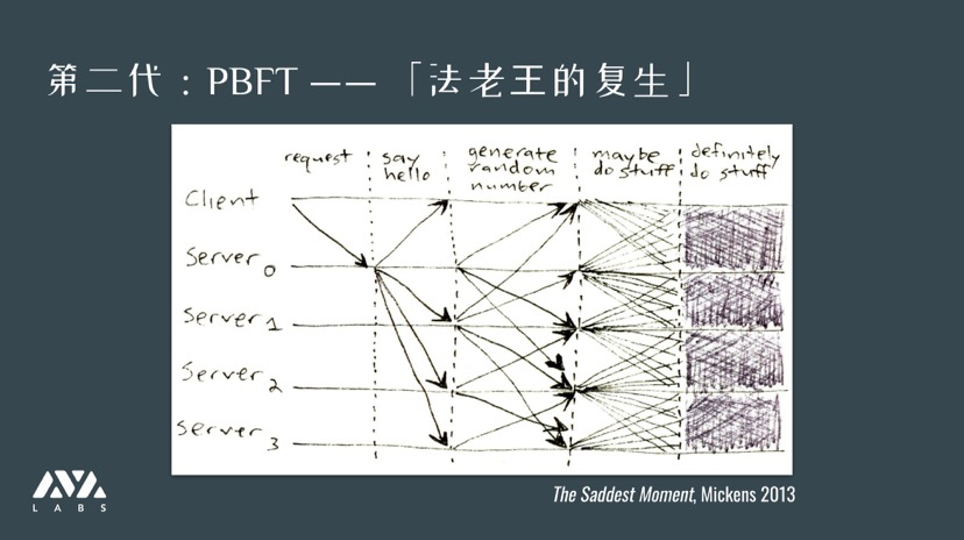 第二代：PBFT —— 「法老王的复生」
request
say
hello
generate
random
number
maybe
do stuff
definitely
do stuff
Client
Server 0
Server 1
Server 2
Server 3
AVA
LABS
The Saddest Moment, Mickens 2013